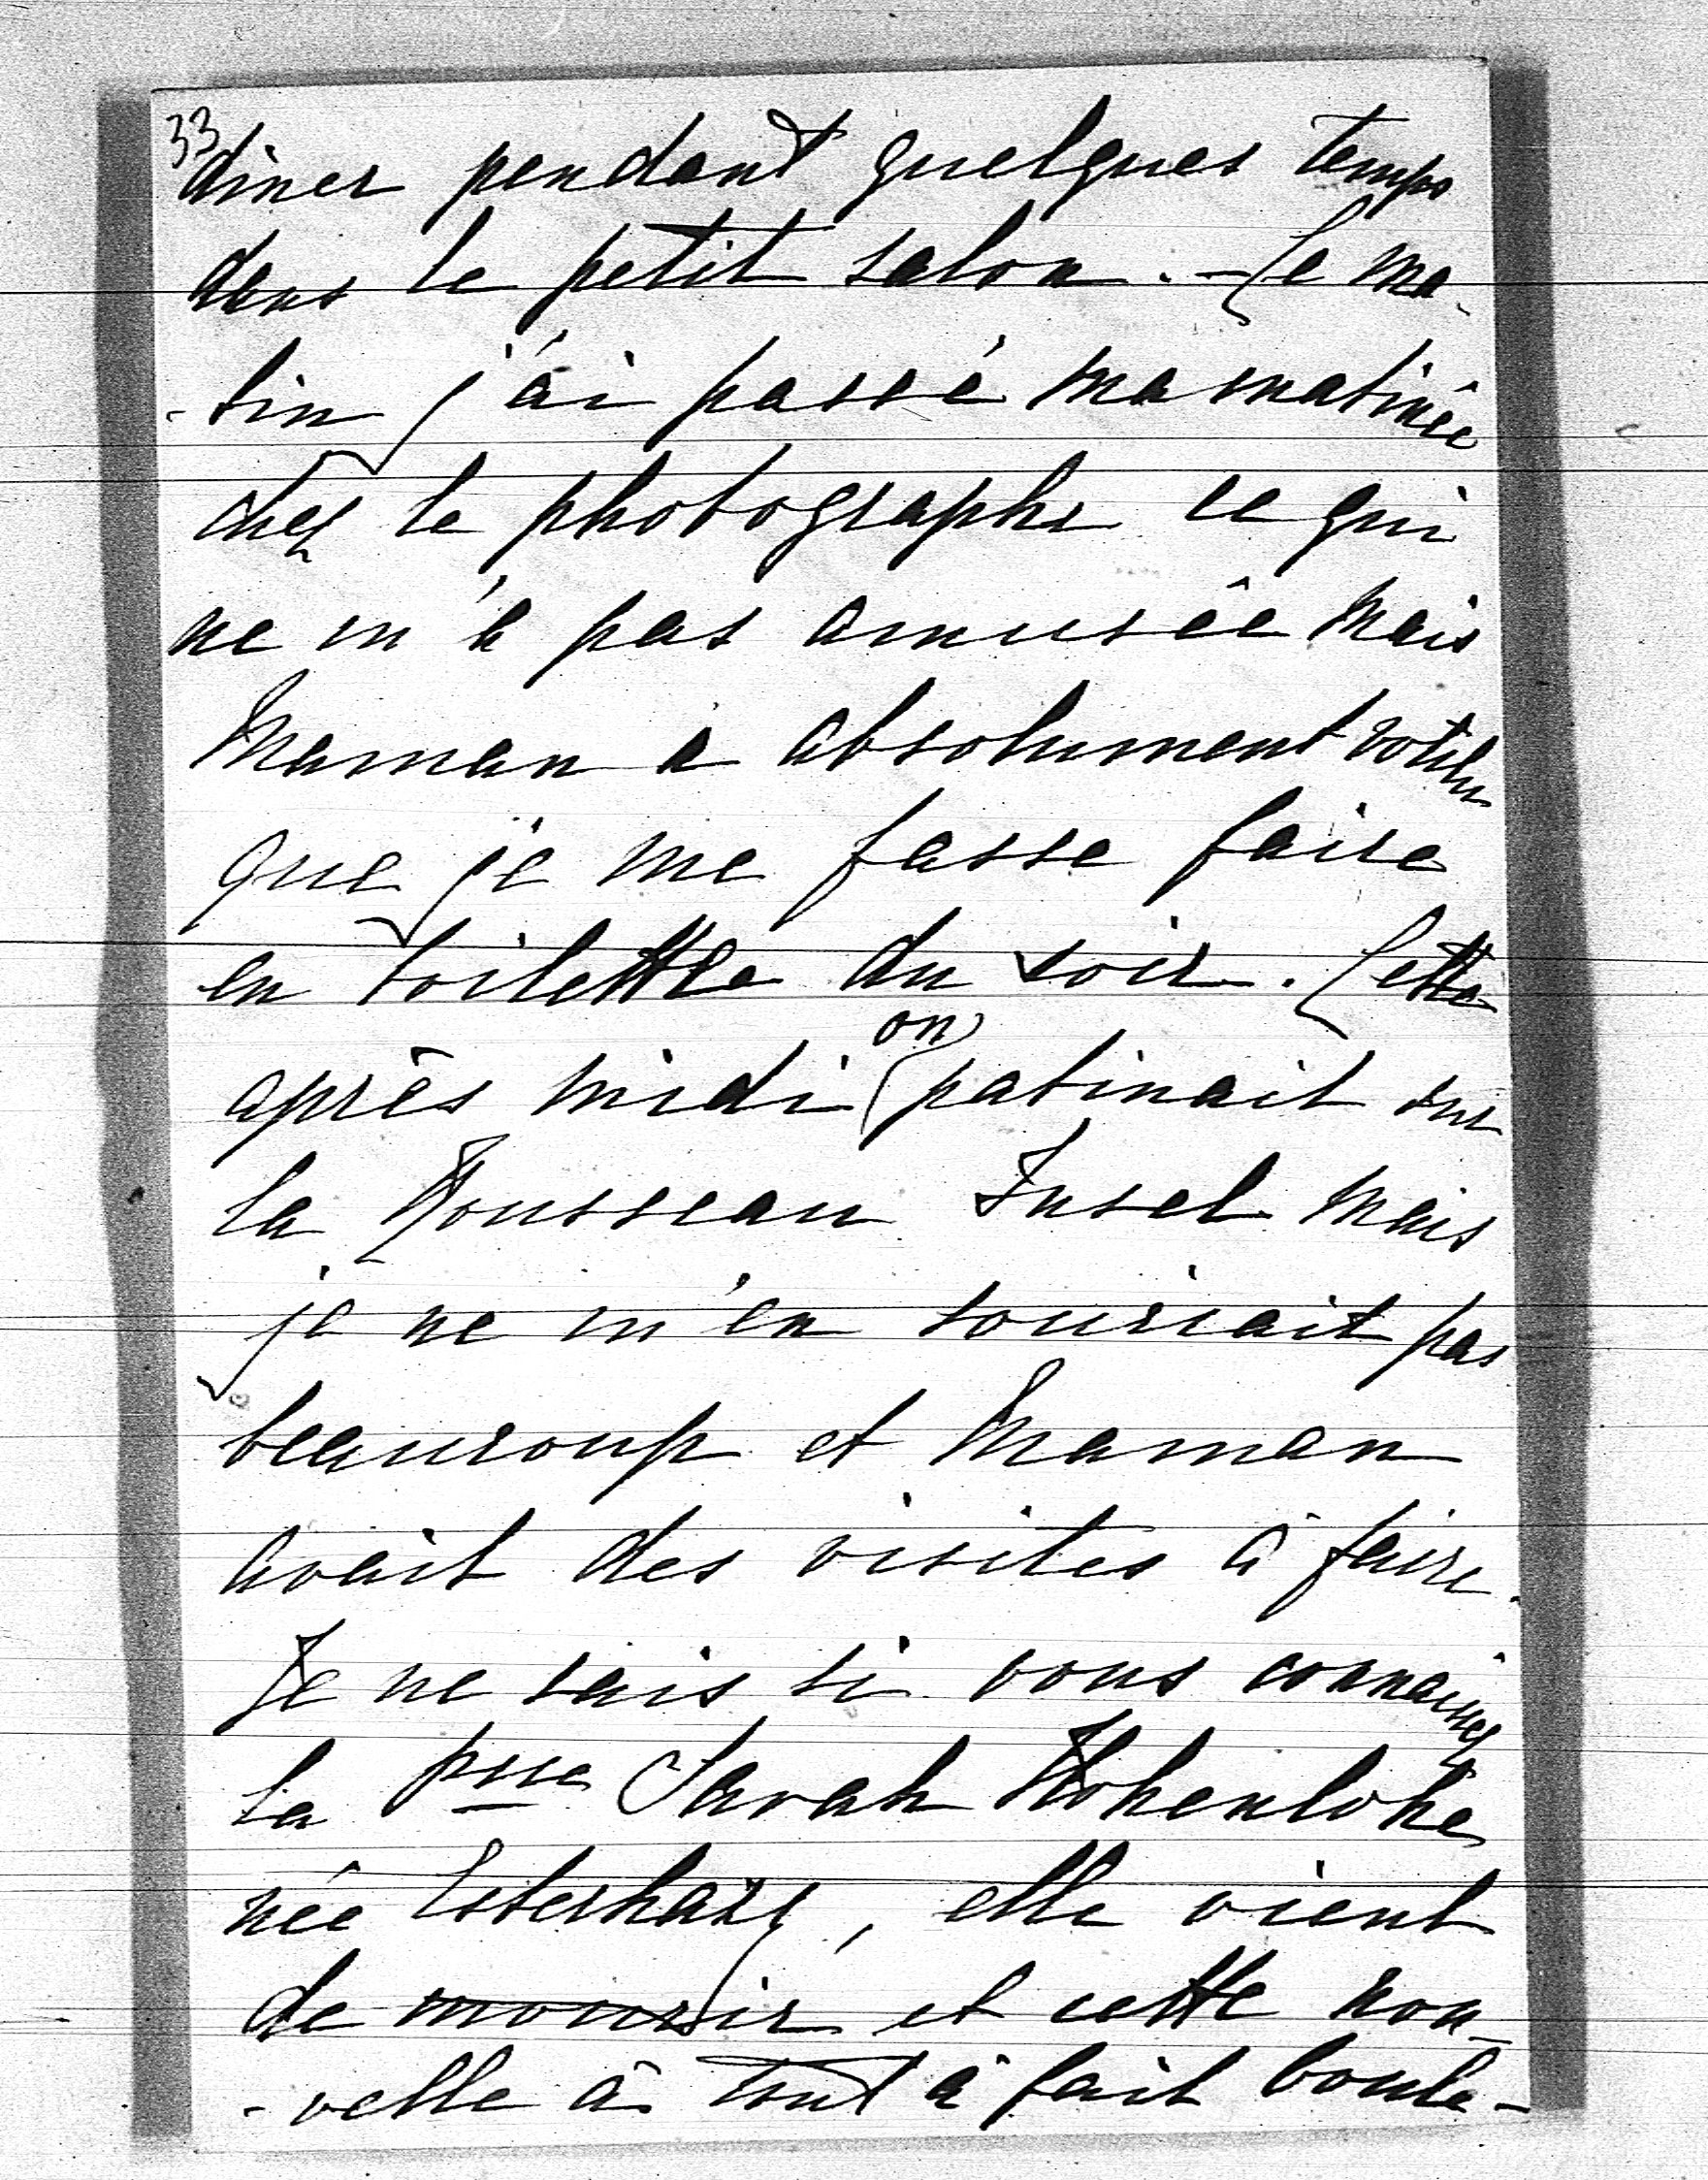 33
diner pendant quelques temps
dans le petit salon. - Ce ma-
-tin j'ai passé ma matinée
chez le photographe ce qui
ne m'a pas amusée mais
Maman a absolument voulu
que je me fasse faire
en toilettte du soir. Cette
après midi on patinait sur
la Rousseau Insel mais
je ne m'en souciait pas
beaucoup et Maman
avait des visites à faire.
Je ne sais si vous connaissez
la psse Sarah Hohenlohe
née Esterhazy, elle vient
de mourir et cette nou-
-velle à tout à fait boule-